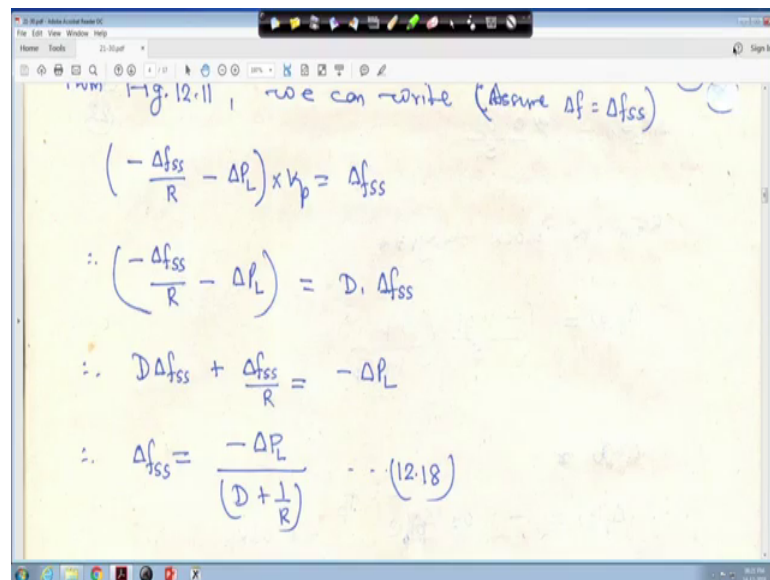 21-30.pdf - Adobe Acrobat Reader DC
File Edit View Window Help
Home Tools 21-30.pdf ×
Sign In
From Fig. 12.11, we can write (Assume Δf = Δfss)
(-Δfss/R - ΔPL) × Kp = Δfss
∴ (-Δfss/R - ΔPL) = D. Δfss
∴ DΔfss + Δfss/R = -ΔPL
∴ Δfss = -ΔPL/(D + 1/R) -- (12.18)